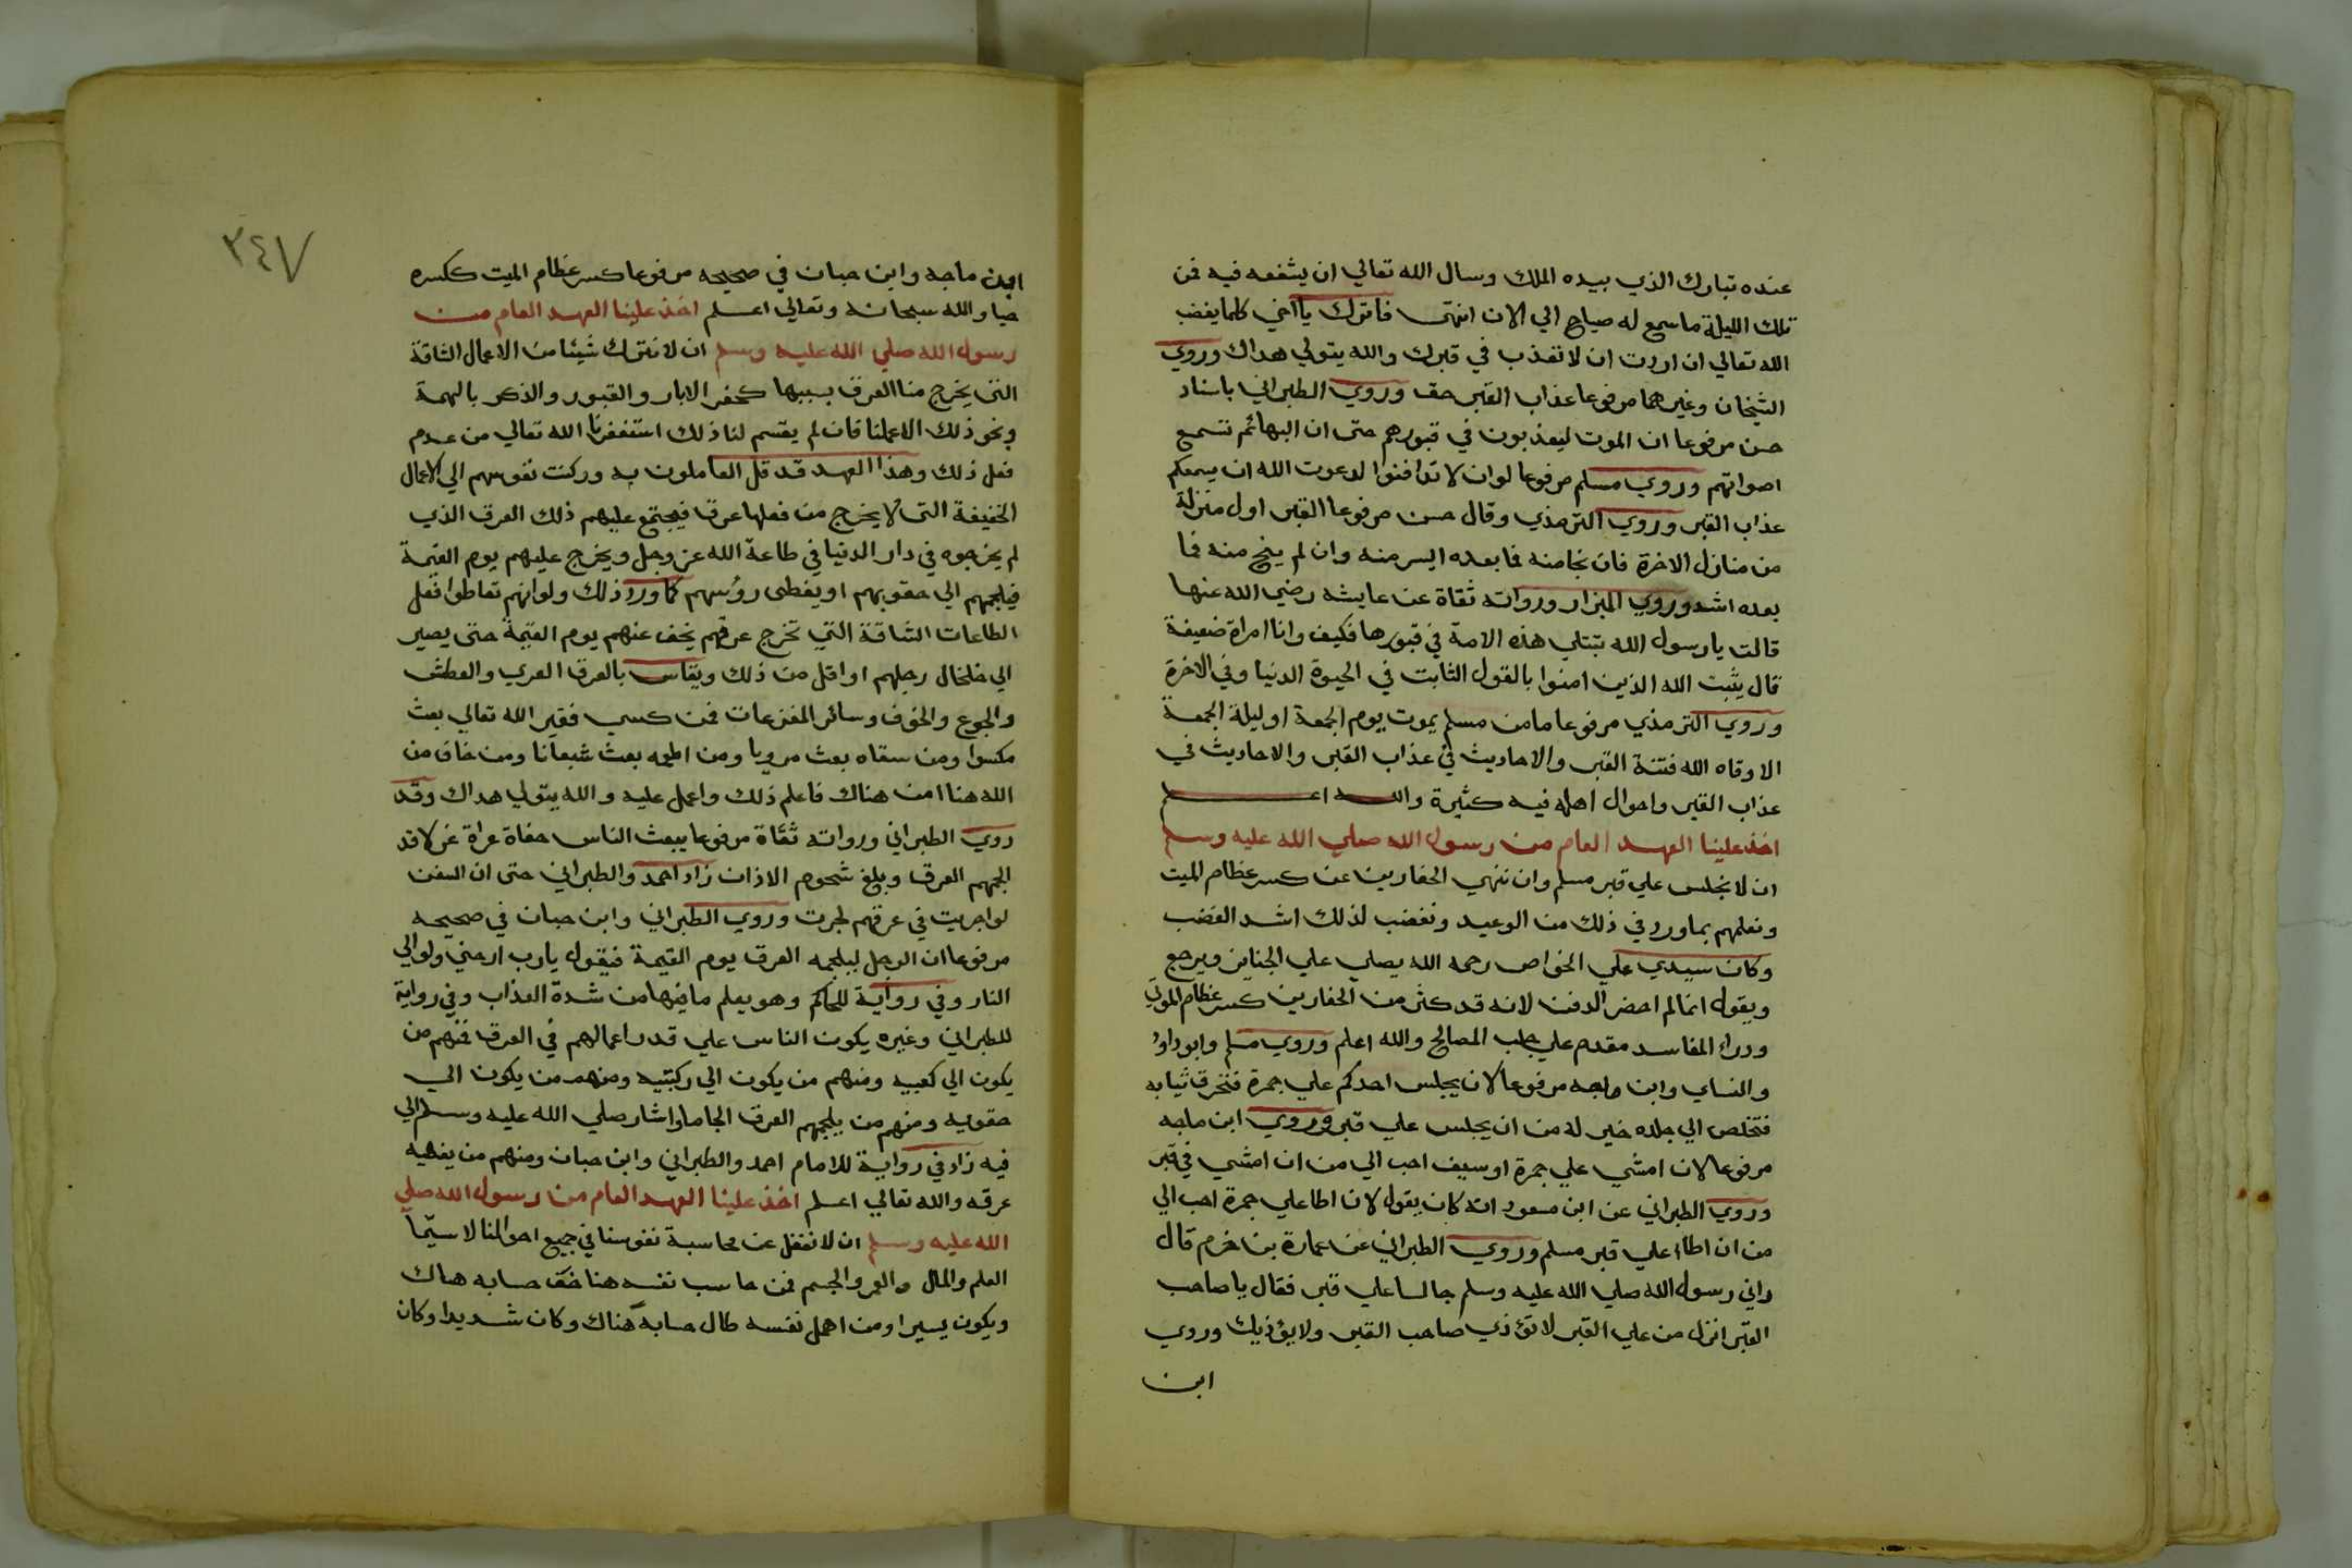 عنده تبارك الذي بيده الملك وسال الله تعالي ان يشفعه فيه فمن
تلك الليلة ما سمع له صياح الي الان انتهى فاترك يا اخي كلما يغضب
الله تعالي ان اردت ان لا تعذب في قبرك والله يتولي هداك وروي
الشيخان وغيرهما مرفوعا عذاب القبر حق وروي الطبراني باسناد
حسن مرفوعا ان الموت ليعذبون في قبورهم حتى ان البهائم تسمع
اصواتهم وروي مسلم مرفوعا لو ان لا تدافنوا لدعوت الله ان يسمعكم
عذاب القبر وروي الترمذي وقال حسن مرفوعا القبر اول منزلة
من منازل الاخرة فان نجا منه فما بعده ايسر منه وان لم ينج منه فما
بعده اشد وروي البزار ورواته ثقاة عن عايشه رضي الله عنها
قالت يا رسول الله تبتلي هذه الامة في قبورها فكيف وانا امراة ضعيفة
قال يثبت الله الذين امنوا بالقول الثابت في الحيوة الدنيا وفي الاخرة
وروي الترمذي مرفوعا ما من مسلم يموت يوم الجمعة او ليلة الجمعة
الا وقاه الله فتنة القبر والاحاديث في عذاب القبر والاحاديث في
عذاب القبر واحوال اهله فيه كثيرة والله اعلم
اخذ علينا العهد العام من رسول الله صلي الله عليه وسلم
ان لا نجلس علي قبر مسلم وان ننهي الحفارين عن كسر عظام الميت
ونعلمهم بما ورد في ذلك من الوعيد ونغضب لذلك اشد الغضب
وكان سيدي علي الخواص رحمه الله يصلي علي الجناين ويرجع
ويقول انما لم احضر الدفن لانه قد كثر من الحفارين كسر عظام الموتي
ودرا المفاسد مقدم علي جلب المصالح والله اعلم وروي مسلم وابو داود
والنساي وابن ماجه مرفوعا لان يجلس احدكم علي جمرة فتحرق ثيابه
فتخلص الي جلده خير له من ان يجلس علي قبر وروي ابن ماجه
مرفوعا لان امشي علي جمرة او سيف احب الي من ان امشي في قبر
وروي الطبراني عن ابن مسعود انه كان يقول لان اطا علي جمرة احب الي
من ان اطاا علي قبر مسلم وروي الطبراني عن عمارة بن خزم قال
راني رسول الله صلي الله عليه وسلم جالسا علي قبر فقال يا صاحب
القبر انزل من علي القبر لا تؤذي صاحب القبر ولا يؤذيك وروي
ابن
٣٤٧
ابن ماجه وابن حبان في صحيحه مرفوعا كسر عظام الميت ككسره
حيا والله سبحانه وتعالي اعلم اخذ علينا العهد العام من
رسول الله صلي الله عليه وسلم ان لا نترك شيئا من الاعمال الشاقة
التي يخرج منا العرق بسببها كحفر الابار والقبور والذكر بالهمة
ونحو ذلك الا عملنا فان لم يقسم لنا ذلك استغفرنا الله تعالي من عدم
فعل ذلك وهذا العهد قد قل العاملون به وركنت نفوسهم الي الاعمال
الخفيفة التي لا يخرج من فعلها عرق فيجتمع عليهم ذلك العرق الذي
لم يخرجوه في دار الدنيا في طاعة الله عز وجل ويخرج عليهم يوم القيمة
فيلجمهم الي حقويهم او يغطي رؤسهم كما ورد ذلك ولو انهم تعاطوا فعل
الطاعات الشاقة التي تخرج عرقهم يخف عنهم يوم القيمة حتى يصير
الي خلخال رجلهم او اقل من ذلك ويقاس بالعرق العري والعطش
والجوع والخوف وسائر المفزعات فمن كسي فقير الله تعالي بعث
مكسوا ومن سقاه بعث مرويا ومن اطعمه بعث شبعانا ومن خاف من
الله هنا امن هناك فاعلم ذلك واعمل عليه والله يتولي هداك وقد
روي الطبراني ورواته ثقاة مرفوعا يبعث الناس حفاة عراة غرلا قد
الجمهم العرق وبلغ شحوم الاذان زاد احمد والطبراني حتى ان السفن
لو اجريت في عرقهم لجرت وروي الطبراني وابن حبان في صحيحه
مرفوعا ان الرجل ليلجمه العرق يوم القيمة فيقول يا رب ارحني ولو الي
النار وفي رواية للحاكم وهو يعلم ما فيها من شدة العذاب وفي رواية
للطبراني وغيره يكون الناس علي قدر اعمالهم في العرق فمنهم من
يكون الي كعبيه ومنهم من يكون الي ركبتيه ومنهم من يكون الي
حقويه ومنهم من يلجمهم العرق الجاما واشار صلي الله عليه وسلم الي
فيه زاد في رواية للامام احمد والطبراني وابن حبان ومنهم من يغطيه
عرقه والله تعالي اعلم اخذ علينا العهد العام من رسول الله صلي
الله عليه وسلم ان لا نغفل عن محاسبة نفوسنا في جميع احوالنا لا سيما
العلم والمال والعمر والجسم فمن حاسب نفسه هنا خف حسابه هناك
ويكون يسيرا ومن اهمل نفسه طال حسابه هناك وكان شديدا وكان